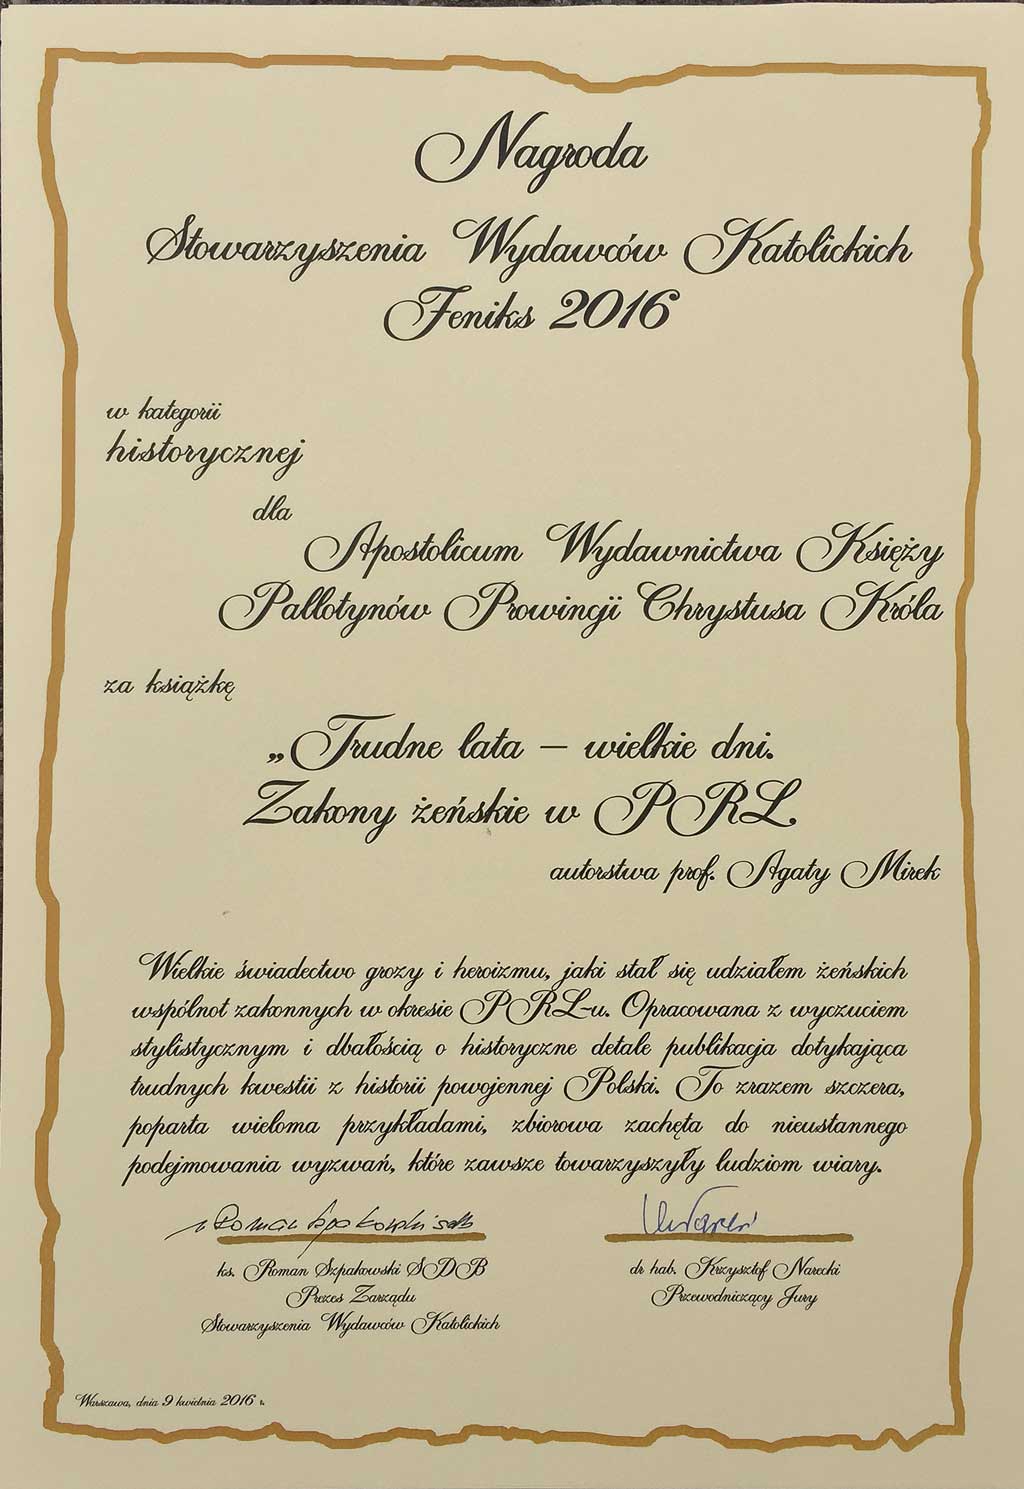 Nagroda
Stowarzyszenia Wydawców Katolickich
Feniks 2016
w kategorii
historycznej
dla
Apostolicum Wydawnictwa Księży
Pallotynów Prowincji Chrystusa Króla
za książkę
„Trudne lata – wielkie dni.
Zakony żeńskie w PRL
autorstwa prof. Agaty Mirek
Wielkie świadectwo grozy i heroizmu, jaki stał się udziałem żeńskich
wspólnot zakonnych w okresie PRL-u. Opracowana z wyczuciem
stylistycznym i dbałością o historyczne detale publikacja dotykająca
trudnych kwestii z historii powojennej Polski. To zrazem szczera,
poparta wieloma przykładami, zbiorowa zachęta do nieustannego
podejmowania wyzwań, które zawsze towarzyszyły ludziom wiary.
ks. Roman Szpakowski SDB
Prezes Zarządu
Stowarzyszenia Wydawców Katolickich
dr hab. Krzysztof Narecki
Przewodniczący Jury
Warszawa, dnia 9 kwietnia 2016 r.